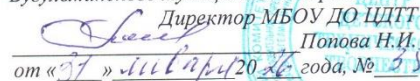 Директор МБОУ ДО ЦДТТ
Попова Н.И.
от «31» января 2026 года, № 3